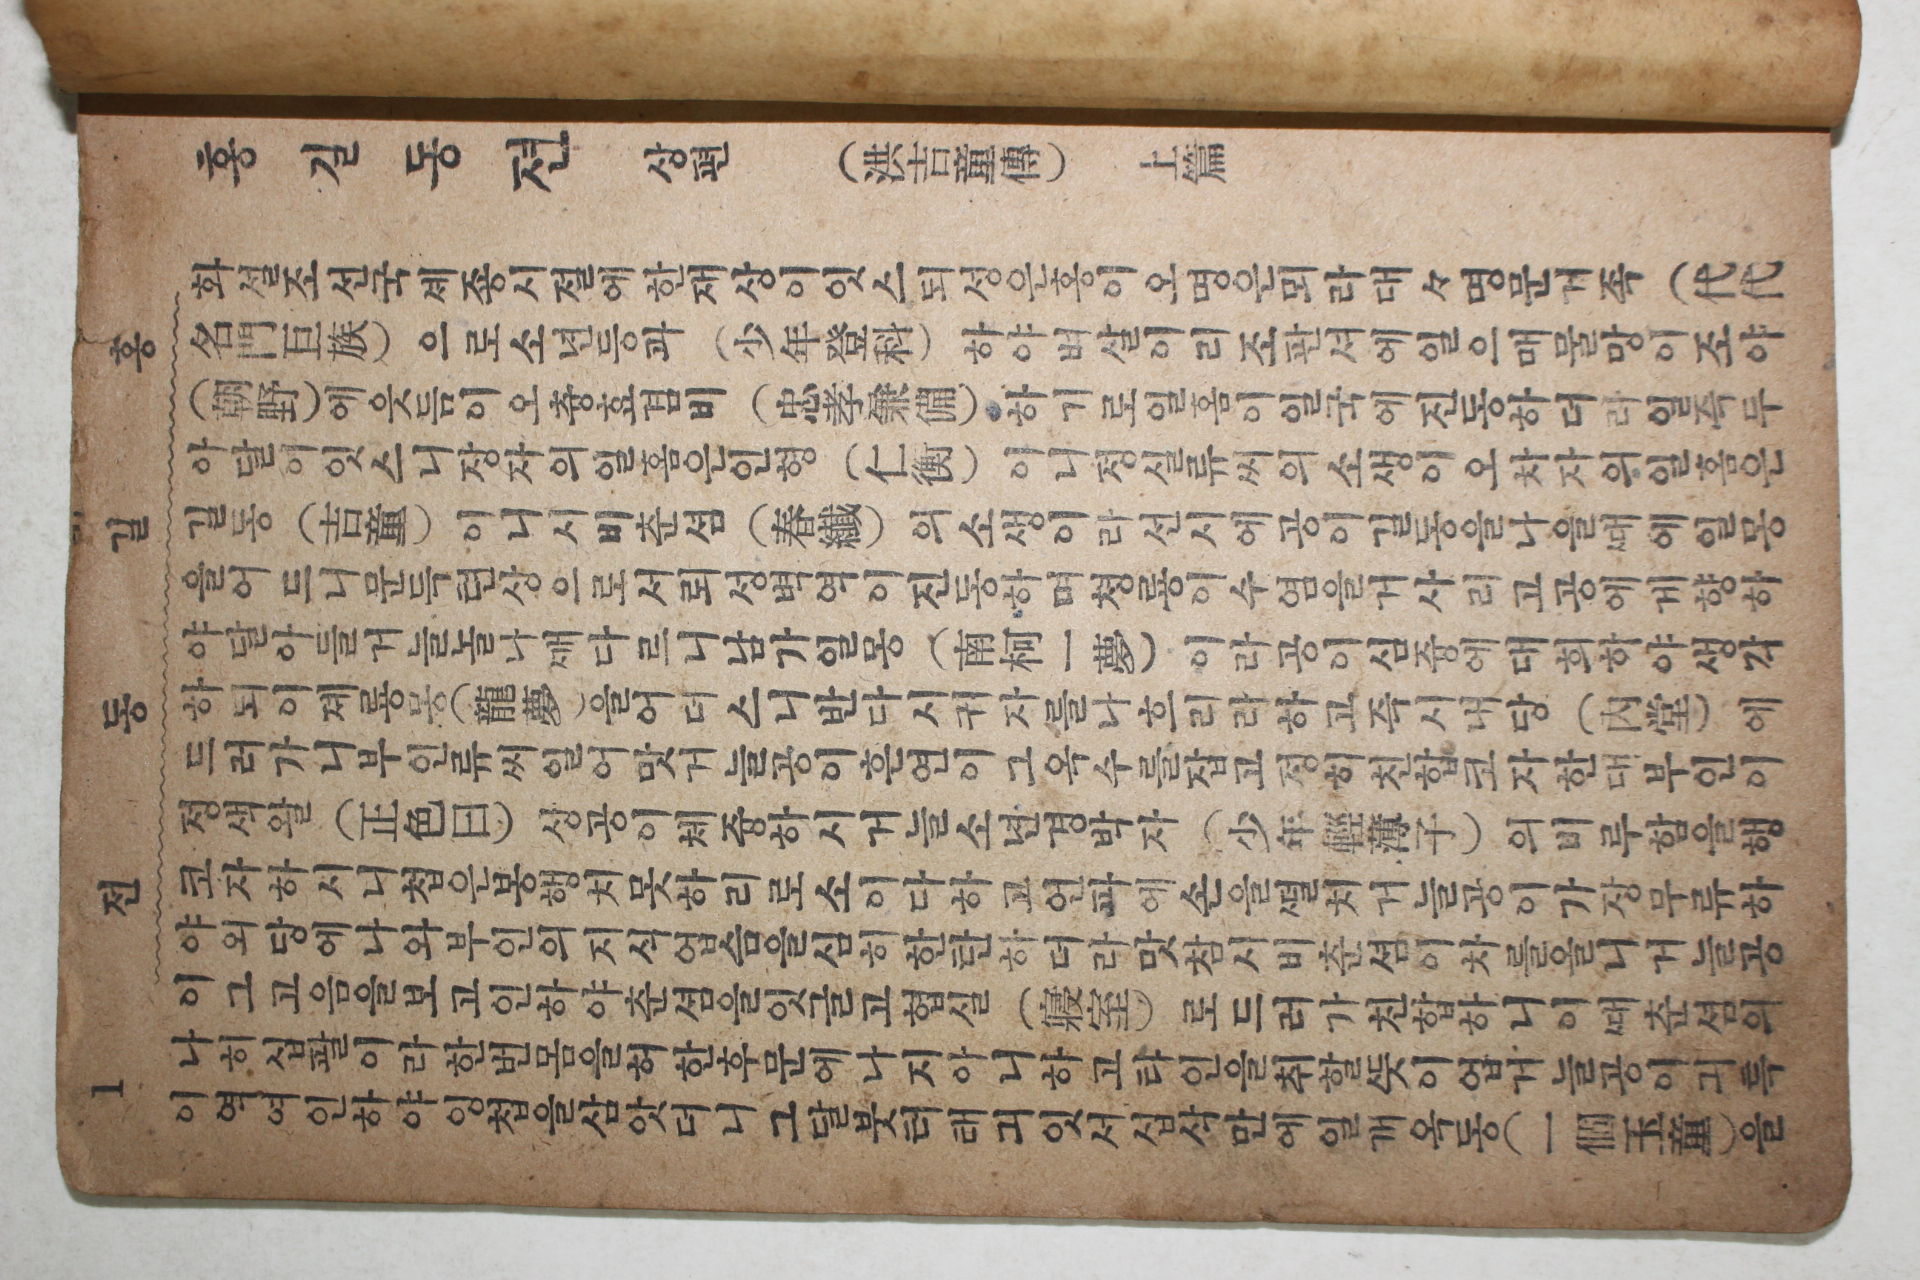 홍길동전 상편 (洪吉童傳) 上篇
화셜조선국세종시졀에한재상이잇스되성은홍이오명은뫼라대々명문거족(代代
名門巨族)으로소년등과(少年登科)하야벼살이리조판서에일으매물망이조야
(朝野)에웃듬이오충효겸비(忠孝兼備)하기로일홈이일국에진동하더라일즉두
아달이잇스니장자의일홈은인형(仁衡)이니졍실류씨의소생이오차자의일홈은
길동(吉童)이니시비춘섬(春纖)의소생이라선시에공이길동을나을때에일몽
을어드니문득텬상으로서뢰성벽역이진동하며청룡이수염을거사리고공에게향하
야달아들거늘놀나깨다르니남가일몽(南柯一夢)이라공이심중에대희하야생각
하되이제룡몽(龍夢)을어더스니반다시귀자를나흐리라하고즉시내당(內堂)에
드러가니부인류씨일어맛거늘공이흔연이그옥수를잡고정히친합코자한대부인이
정색왈(正色曰)상공이체중하시거늘소년경박자(少年輕薄子)의비루함을행
코자하시니첩은봉행치못하리로소이다하고언파에손을떨처거늘공이가장무류하
야외당에나와부인의지식업슴을심히한탄하더라맛참시비춘섬이차를올니거늘공
이그고음을보고인하야춘섬을잇글고협실(寢室)로드러가친합하니이때춘섬의
나히십팔이라한번몸을허한후문에나지아니하고타인을취할뜻이업거늘공이긔특
이역여인하야잉첩을삼앗더니그달붓터태긔잇서십삭만에일개옥동(一個玉童)을
홍길동전
1